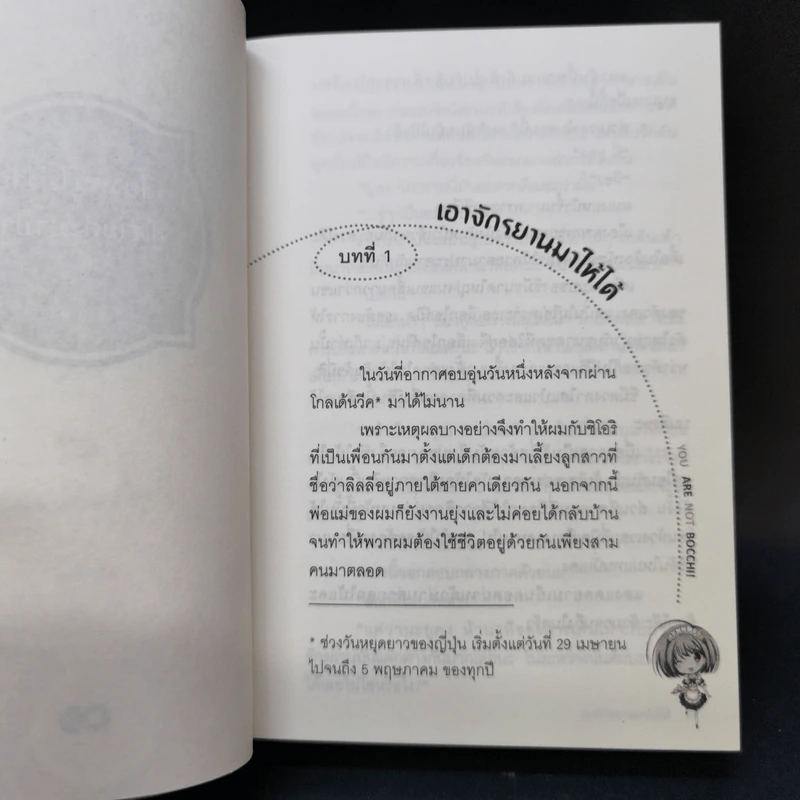 เอาจักรยานมาให้ได้
บทที่ 1
ในวันที่อากาศอบอุ่นวันหนึ่งหลังจากผ่าน
โกลเด้นวีค* มาได้ไม่นาน
เพราะเหตุผลบางอย่างจึงทำให้ผมกับชิโอริ
ที่เป็นเพื่อนกันมาตั้งแต่เด็กต้องมาเลี้ยงลูกสาวที่
ชื่อว่าลิลลี่อยู่ภายใต้ชายคาเดียวกัน นอกจากนี้
พ่อแม่ของผมก็ยังงานยุ่งและไม่ค่อยได้กลับบ้าน
จนทำให้พวกผมต้องใช้ชีวิตอยู่ด้วยกันเพียงสาม
คนมาตลอด
* ช่วงวันหยุดยาวของญี่ปุ่น เริ่มตั้งแต่วันที่ 29 เมษายน
ไปจนถึง 5 พฤษภาคม ของทุกปี
YOU ARE NOT BOCCHI!